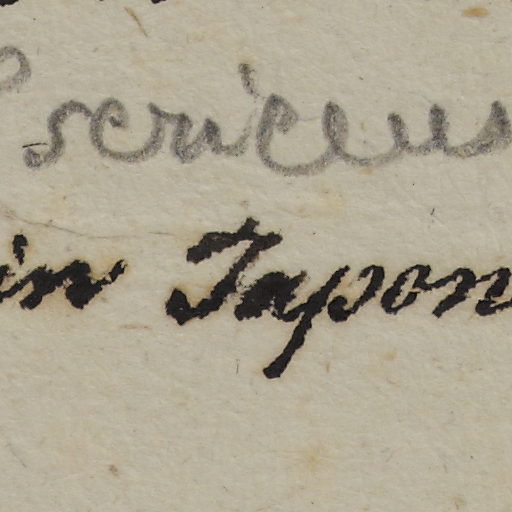 sericeus
in Japon